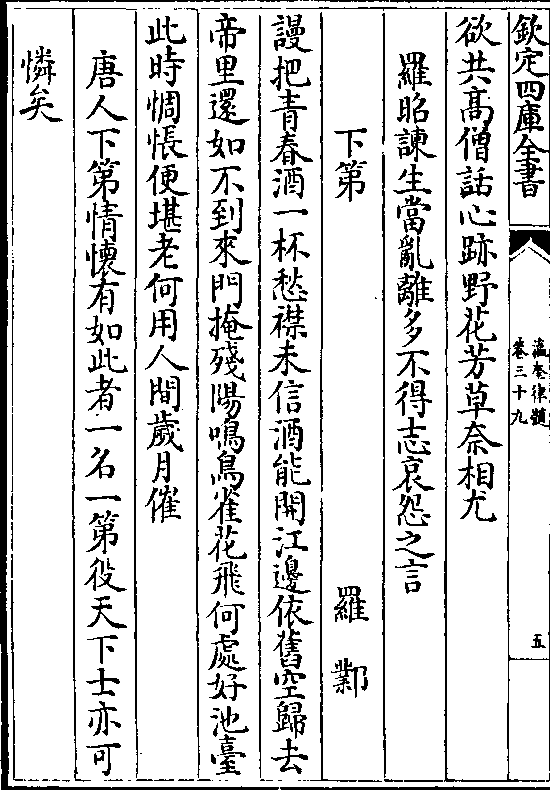 欽定四庫全書
瀛奎律髓
卷三十九
五
欲共高僧話心跡野花芳草奈相尤
羅昭諫生當亂離多不得志哀怨之言
下第 羅鄴
謾把青春酒一杯愁襟未信酒能開江邊依舊空歸去
帝里還如不到來門掩殘陽鳴鳥雀花飛何處好池臺
此時惆悵便堪老何用人間歲月催
唐人下第情懷有如此者一名一第役天下士亦可
憐矣